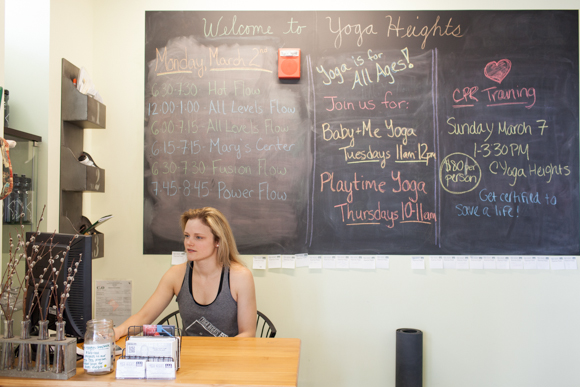 Welcome to Yoga Heights
Monday March 2nd
6:30-7:30 · Hot Flow
12:00-1:00 · All Levels Flow
6:00-7:15 · All Levels Flow
6:15-7:15 · Mary's Center
6:30-7:30 · Fusion Flow
7:45-8:45 · Power Flow
Yoga is for
All Ages!
Join us for:
Baby+Me Yoga
Tuesdays 11am-12pm
Playtime Yoga
Thursdays 10-11am
CPR Training
Sunday March 7
1-3:30PM
@Yoga Heights
$80 per
person
Get certified to
save a life!